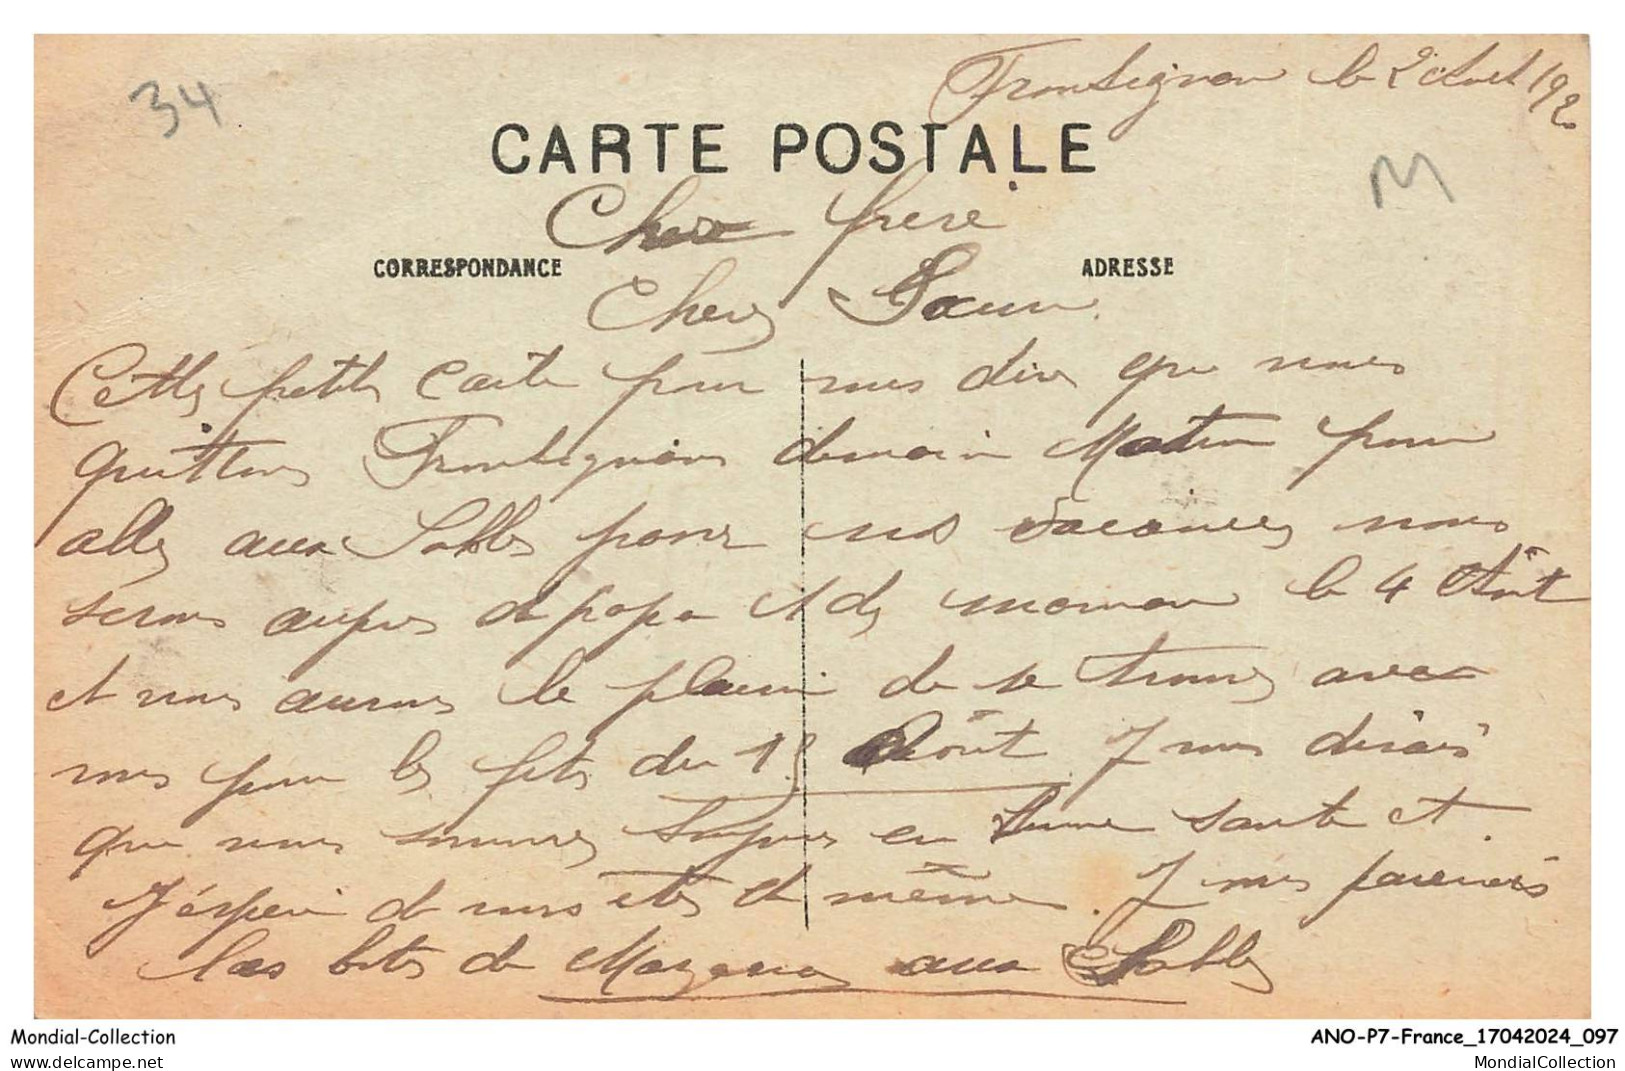 Frontignan le 2 Aout 192
34
CARTE POSTALE
M
Cher frere
CORRESPONDANCE
ADRESSE
Chere Soeur
Cette petite carte pour vous dire que nous
quittons Frontignan demain Matin pour
aller aux Sables pour nos vacances nous
serons aupres de papa et de maman le 4 Août
et nous aurons le plaisir de se trouver avec
vous pour les fetes du 15 Août Je vous dirais
que nous sommes toujours en bonne sante et
J'espère de vous etes de même. Je vous
les de aux Sables
Mondial-Collection
www.delcampe.net
ANO-P7-France_17042024_097
MondialCollection